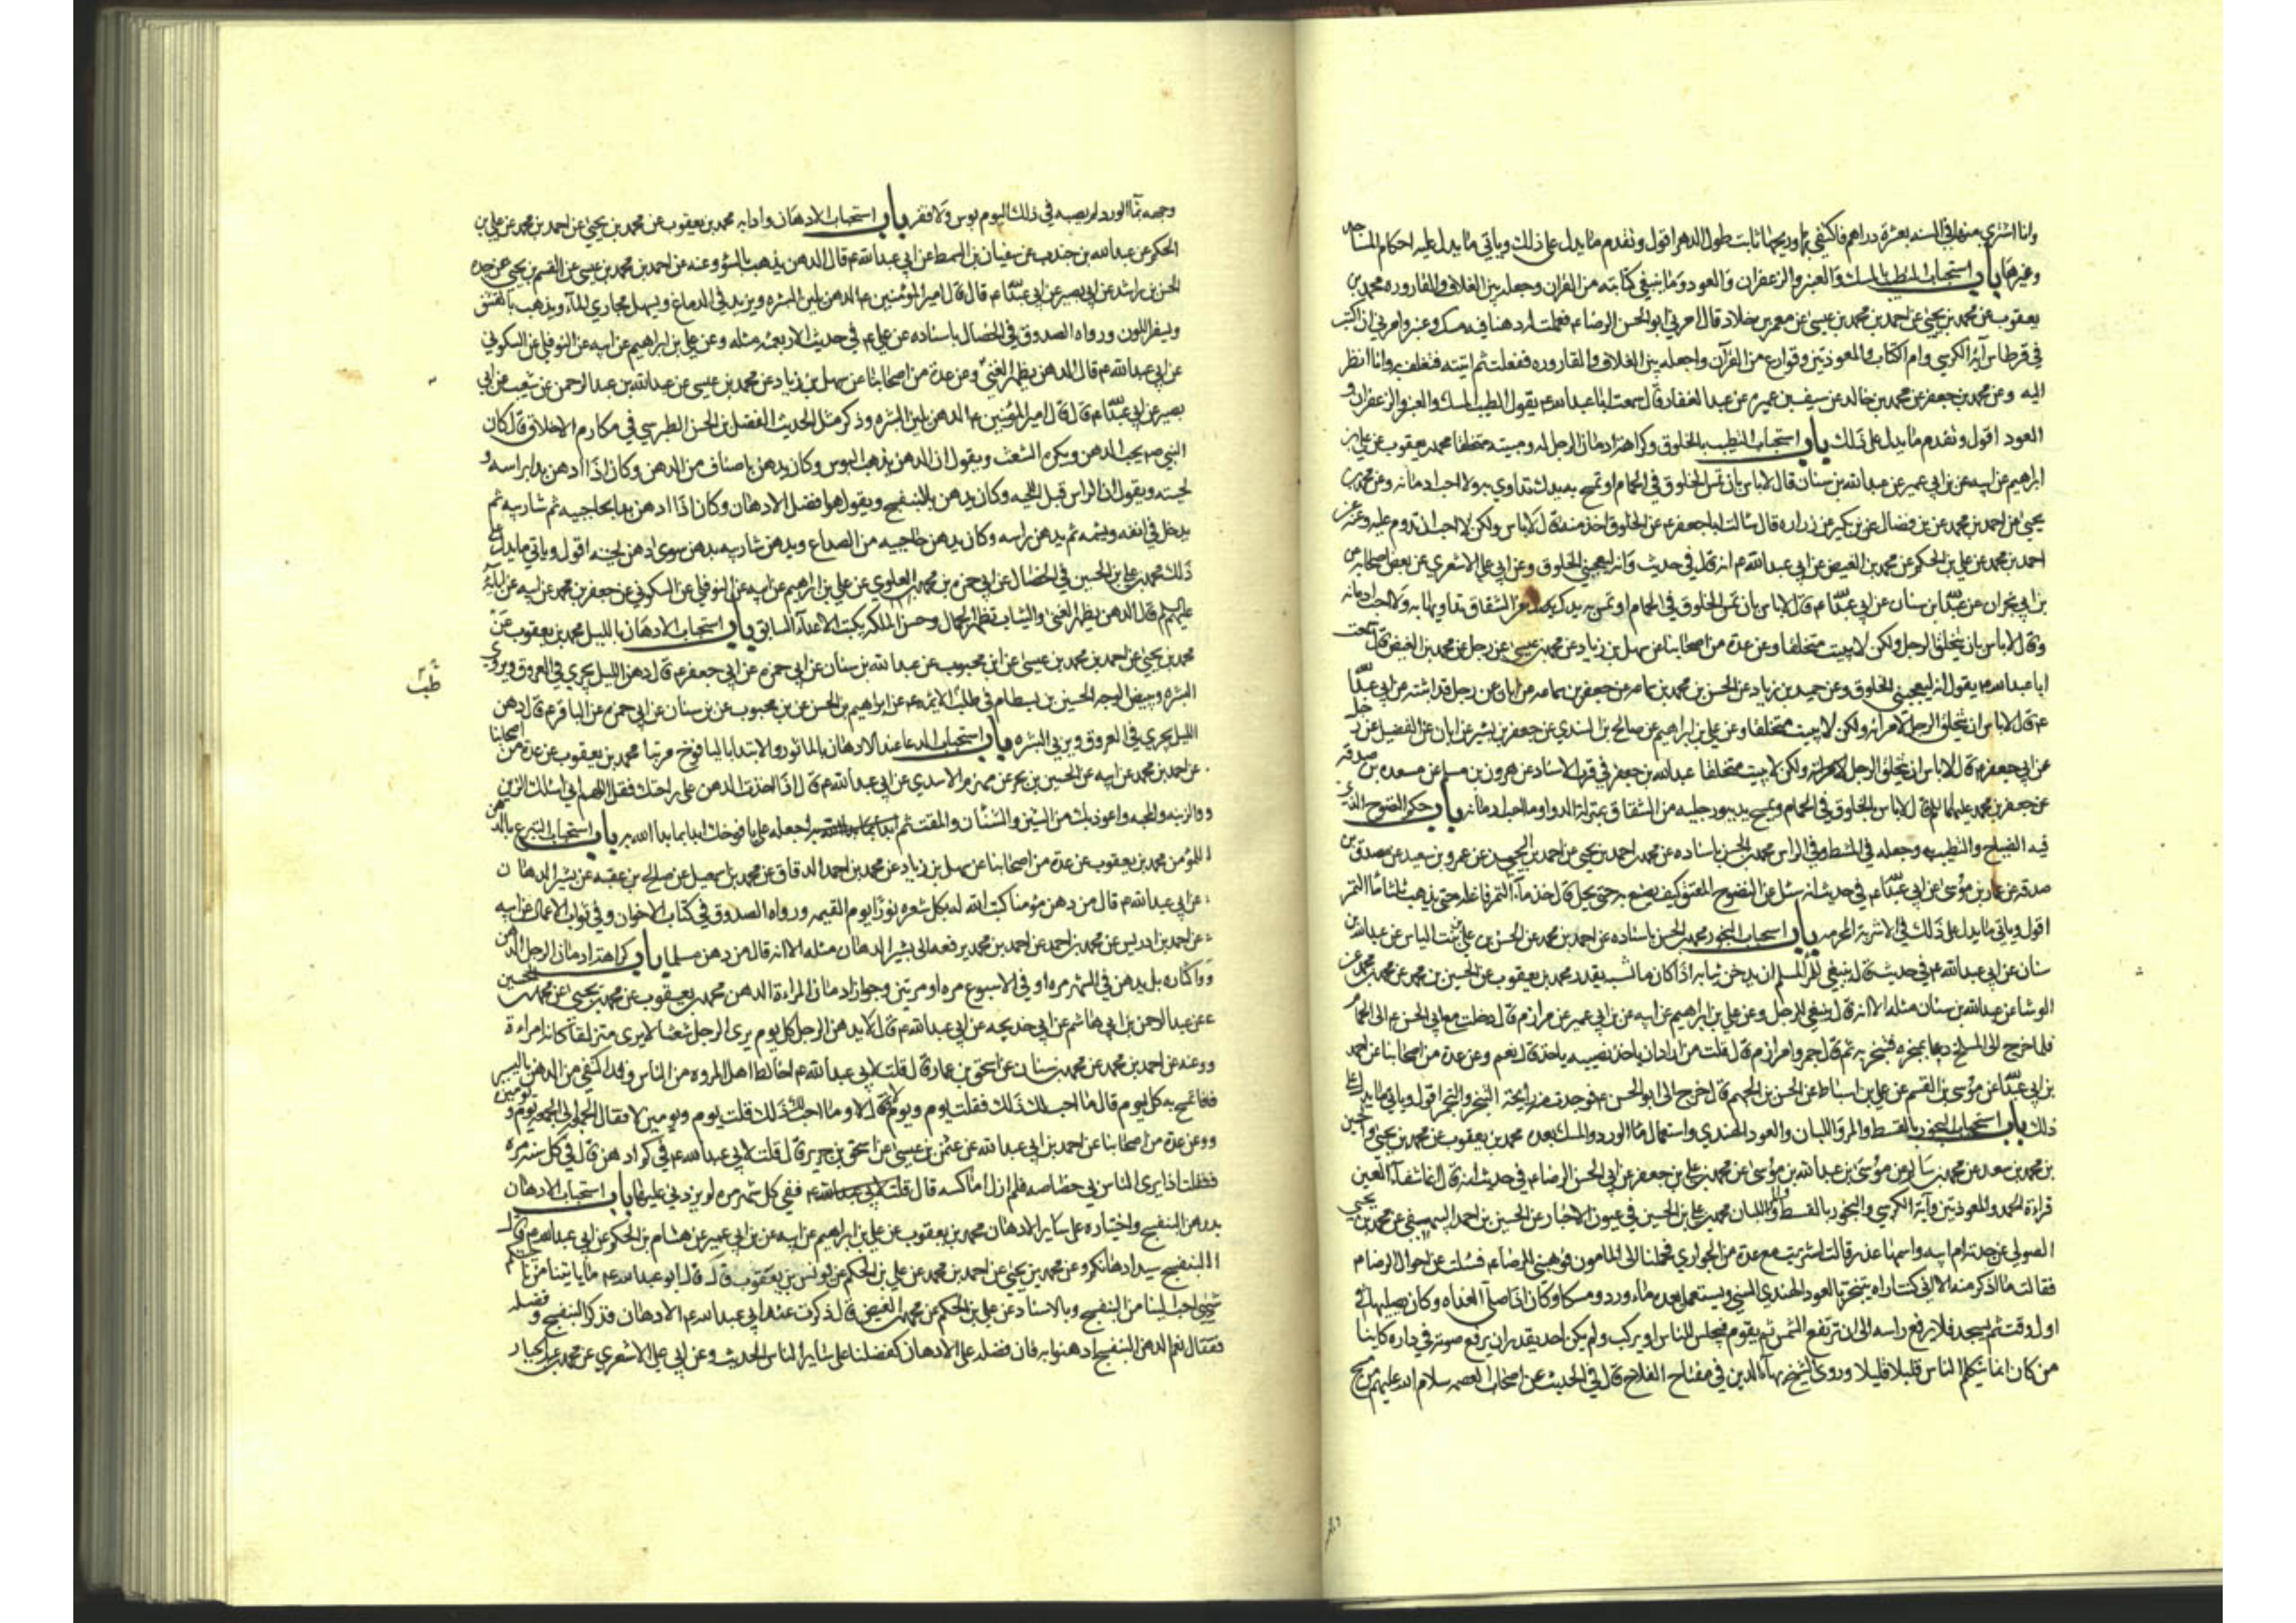 وانا اشتري منها في السنة بعشرة دراهم فاكتفي بها وريحها ثابت طول الدهر اقول وتقدم ما يدل على ذلك وياتي ما يدل عليه احكام المساجد
وغيرها باب استحباب التطيب بالمسك والعنبر والزعفران والعود وما ينبغي كتابته من القران وجعله بين الغلاف والقاروره محمد بن
يعقوب عن محمد بن يحيى عن احمد بن محمد بن عيسى عن معمر بن خلاد قال امرني ابو الحسن الرضا ع فعملت له دهنا فيه مسك وعنبر وامرني ان اكتب
في قرطاس آية الكرسي وام الكتاب والمعوذتين وقوارع من القرآن واجعله بين الغلاف والقاروره ففعلت ثم اتيته فتغلف به وانا انظر
اليه وعن محمد بن جعفر عن محمد بن خالد عن سيف بن عميره عن عبد الغفار قال سمعت ابا عبد الله ع يقول الطيب المسك والعنبر والزعفران و
العود اقول وتقدم ما يدل على ذلك باب استحباب التطيب بالخلوق وكراهة ادمان الرجل له ومبيته متخلقا محمد بن يعقوب عن علي بن
ابراهيم عن ابيه عن بن ابي عمير عن عبد الله بن سنان قال لا باس بان تمس الخلوق في الحمام او تمسح به يدك تداوي به ولا احب ادمانه وعن محمد بن
يحيى عن احمد بن محمد عن بن فضال عن بن بكير عن زراره قال سالت ابا جعفر ع عن الخلوق اخذ منه قال لا باس ولكن لا احب ان تدوم عليه وعنه عن
احمد بن محمد عن علي بن الحكم عن محمد بن الفيض عن ابي عبد الله ع انه قال في حديث وانه ليعجبني الخلوق وعن ابي علي الاشعري عن بعض اصحابه عن
بن ابي نجران عن عبد الله بن سنان عن ابي عبد الله ع قال لا باس بان تمس الخلوق في الحمام او تمس به يدك من الشقاق تداويها به ولا احب ادمانه
وقال لا باس بان يتخلق الرجل ولكن لا يبيت متخلقا وعن عدة من اصحابنا عن سهل بن زياد عن محمد بن عيسى عن رجل عن محمد بن الفيض قال سمعت
ابا عبد الله ع يقول انه ليعجبني الخلوق وعن حميد بن زياد عن الحسن بن محمد بن سماعه عن جعفر بن سماعه عن ابان عن رجل قد اثبته عن ابي عبد الله
ع قال لا باس ان يتخلق الرجل لامراته ولكن لا يبيت متخلقا وعن علي بن ابراهيم عن صالح بن السندي عن جعفر بن بشير عن ابان عن الفضيل عن رجل
عن ابي جعفر ع قال لا باس ان يتخلق الرجل لامراته ولكن لا يبيت متخلقا عبد الله بن جعفر في قرب الاسناد عن هرون بن مسلم عن مسعده بن صدقه
عن جعفر بن محمد عليهما السلام قال لا باس بالخلوق في الحمام ويمسح يديه ورجليه من الشقاق بمنزلة الدوا وما احب ادمانه باب حكم النضوح الذي
فيه الضياح والتطيب به وجعله في المشط وفي الراس محمد بن الحسن باسناده عن محمد بن احمد بن يحيى عن احمد بن الحسن عن عمرو بن سعيد عن مصدق بن
صدقه عن عمار بن موسى عن ابي عبد الله ع في حديث انه سئل عن النضوح المعتق كيف يصنع به حتى يحل قال خذ ماء التمر فاغله حتى يذهب ثلثا ماء التمر
اقول وياتي ما يدل على ذلك في الاشربة المحرمه باب استحباب البخور محمد بن الحسن باسناده عن احمد بن محمد عن الحسن بن علي بن بنت الياس عن عبد الله بن
سنان عن ابي عبد الله ع في حديث قال ينبغي للمرء المسلم ان يدخن ثيابه اذا كان يقدر محمد بن يعقوب عن الحسين بن محمد عن معلى بن محمد عن
الوشا عن عبد الله بن سنان مثله الا انه قال ينبغي للرجل وعن علي بن ابراهيم عن ابيه عن بن ابي عمير عن مرازم قال دخلت مع ابي الحسن ع الى الحمام
فلما خرج الى المسلخ دعا بمجمره فتبخر به ثم قال جمروا مرازم قال قلت من اراد ان ياخذ نصيبه ياخذ قال نعم وعن عدة من اصحابنا عن احمد
بن ابي عبد الله عن موسى بن القسم عن علي بن اسباط عن الحسن بن الجهم قال خرج الى ابو الحسن ع فوجدت منه رايحة التجمير اقول وياتي ما يدل على
ذلك باب استحباب البخور بالقسط والمر واللبان والعود الهندي واستعمال ماء الورد والمسك بعده محمد بن يعقوب عن محمد بن يحيى
بن محمد بن سعد عن محمد بن سالم عن موسى بن عبد الله بن موسى عن محمد بن علي بن جعفر عن ابي الحسن الرضا ع في حديث انه قال انما شفاء العين
قراءة الحمد والمعوذتين وآية الكرسي والبخور بالقسط والمر واللبان محمد بن علي بن الحسين في عيون الاخبار عن الحسين بن احمد البيهقي عن محمد بن يحيى
الصولي عن جدته ام ابيه واسمها عذر قالت اشتريت مع عدة من الجواري فحملنا الى المامون فوهبني للرضا ع فسئلت عن احوال الرضا ع
فقالت ما اذكر منه الا اني كنت اراه يتبخر بالعود الهندي السني ويستعمل بعده ماء ورد ومسكا وكان اذا صلى الغداه وكان يصليها في
اول وقت ثم يسجد فلا يرفع راسه الى ان ترتفع الشمس ثم يقوم فيجلس للناس او يركب ولم يكن احد يقدر ان يرفع صوته في داره كاينا
من كان انما يتكلم الناس قليلا قليلا وروى الشيخ بهاء الدين في مفتاح الفلاح قال في الحديث عن اصحاب العصمه سلام الله عليهم من مسح
وجهه بماء الورد لم يصبه في ذلك اليوم بوس ولا فقر باب استحباب الادهان وادابه محمد بن يعقوب عن محمد بن يحيى عن احمد بن محمد عن علي بن
الحكم عن عبد الله بن جندب عن سفيان بن السمط عن ابي عبد الله ع قال الدهن يذهب بالسوء وعنه عن احمد بن محمد بن عيسى عن القسم بن يحيى عن جده
الحسن بن راشد عن ابي بصير عن ابي عبد الله ع قال قال امير المؤمنين ع الدهن يلين البشره ويزيد في الدماغ ويسهل مجاري الماء ويذهب بالقشف
ويسفر اللون ورواه الصدوق في الخصال باسناده عن علي ع في حديث الاربعمئه مثله وعن علي بن ابراهيم عن ابيه عن النوفلي عن السكوني
عن ابي عبد الله ع قال الدهن يظهر الغنى وعن عدة من اصحابنا عن سهل بن زياد عن محمد بن عيسى عن عبد الله بن عبد الرحمن عن شعيب عن ابي
بصير عن ابي عبد الله ع قال قال امير المؤمنين ع الدهن يلين البشره وذكر مثل الحديث الفضل بن الحسن الطبرسي في مكارم الاخلاق قال كان
النبي ص يحب الدهن ويكره الشعث ويقول ان الدهن يذهب البوس وكان يدهن باصناف من الدهن وكان اذا ادهن بدا براسه و
لحيته ويقول ان الراس قبل اللحيه وكان يدهن بالبنفسج ويقول هو افضل الادهان وكان اذا ادهن بدا بحاجبيه ثم شاربيه ثم
يدخل في انفه ويشمه ثم يدهن راسه وكان يدهن حاجبيه من الصداع ويدهن شاربيه بدهن سوى دهن لحيته اقول وياتي ما يدل على
ذلك محمد بن علي بن الحسين في الخصال عن ابي حمزه بن محمد العلوي عن علي بن ابراهيم عن ابيه عن النوفلي عن السكوني عن جعفر بن محمد عن ابيه عن آبائه
عليهم السلم قال الدهن يظهر الغنى والثياب تظهر الجمال وحسن الملكه يكبت الاعداء السابق باب استحباب الادهان بالليل محمد بن يعقوب عن
محمد بن يحيى عن احمد بن محمد بن عيسى عن ابن محبوب عن عبد الله بن سنان عن ابي حمزه عن ابي جعفر ع قال دهن الليل يجري في العروق ويروي
البشره ويبيض الوجه الحسين بن بسطام في طب الائمه ع عن ابراهيم بن الحسن عن بن محبوب عن بن سنان عن ابي حمزه عن الباقر ع قال دهن
طب
الليل يجري في العروق ويربي البشره باب استحباب الدعا عند الادهان بالماثور والابتدا باليافوخ مرتبا محمد بن يعقوب عن عدة من اصحابنا
عن احمد بن محمد عن ابيه عن الحسين بن بحر عن مهزم الاسدي عن ابي عبد الله ع قال اذا اخذت الدهن على راحتك فقل اللهم اني اسئلك الزين
والزينه والمحبه واعوذ بك من الشين والشنان والمقت ثم اجعله على يافوخك ابدا بما بدا الله به باب استحباب التبرع بالدهن
للمؤمن محمد بن يعقوب عن عدة من اصحابنا عن سهل بن زياد عن محمد بن احمد الدقاق عن محمد بن اسمعيل عن صالح بن عقبه عن بشير الدهان
عن ابي عبد الله ع قال من دهن مؤمنا كتب الله له بكل شعره نورا يوم القيمه ورواه الصدوق في كتاب الاخوان وفي ثواب الاعمال عن ابيه
عن احمد بن ادريس عن محمد بن احمد عن احمد بن محمد يرفعه الى بشير الدهان مثله الا انه قال من دهن مسلما باب كراهة ادمان الرجل الدهن
واكثاره بل يدهن في الشهر مره او في الاسبوع مره او مرتين وجواز ادمان المراءة الدهن محمد بن يعقوب عن محمد بن يحيى عن محمد بن الحسين
عن عبد الرحمن بن ابي هاشم عن ابي خديجه عن ابي عبد الله ع قال لا يدهن الرجل كل يوم يرى الرجل شعثا لا يرى متزلقا كانه امراءة
وعنه عن احمد بن محمد عن محمد بن سنان عن اسحق بن عمار قال قلت لابي عبد الله ع اخالط اهل المروه من الناس وقد اكتفي من الدهن باليسير
فاتمسح به كل يوم قال ما احب لك ذلك فقلت يوم ويوم لا قال لا وما احب لك ذلك قلت يوم ويومين لا فقال الجمعه الى الجمعه يوم ويومين
وعن عدة من اصحابنا عن احمد بن ابي عبد الله عن عثمن بن عيسى عن اسحق بن جرير قال قلت لابي عبد الله ع في كم ادهن قال في كل سنه مره
فقلت اذا يرى الناس بي خصاصه فلم ازل اماكسه قال ففي كل شهر مره لم يزدني عليها باب استحباب الادهان
بدهن البنفسج واختياره على ساير الادهان محمد بن يعقوب عن علي بن ابراهيم عن ابيه عن بن ابي عمير عن هشام بن الحكم عن ابي عبد الله ع قال
البنفسج سيد ادهانكم وعن محمد بن يحيى عن احمد بن محمد عن علي بن الحكم عن يونس بن يعقوب قال قال ابو عبد الله ع ما ياتينا من ناحيتكم
شيئ احب الينا من البنفسج وبالاسناد عن علي بن الحكم عن محمد بن الفيض قال ذكرت عند ابي عبد الله ع الادهان فذكر البنفسج وفضله
فقال نعم الدهن البنفسج ادهنوا به فان فضله على الادهان كفضلنا على ساير الناس الحديث وعن ابي علي الاشعري عن محمد بن عبد الجبار